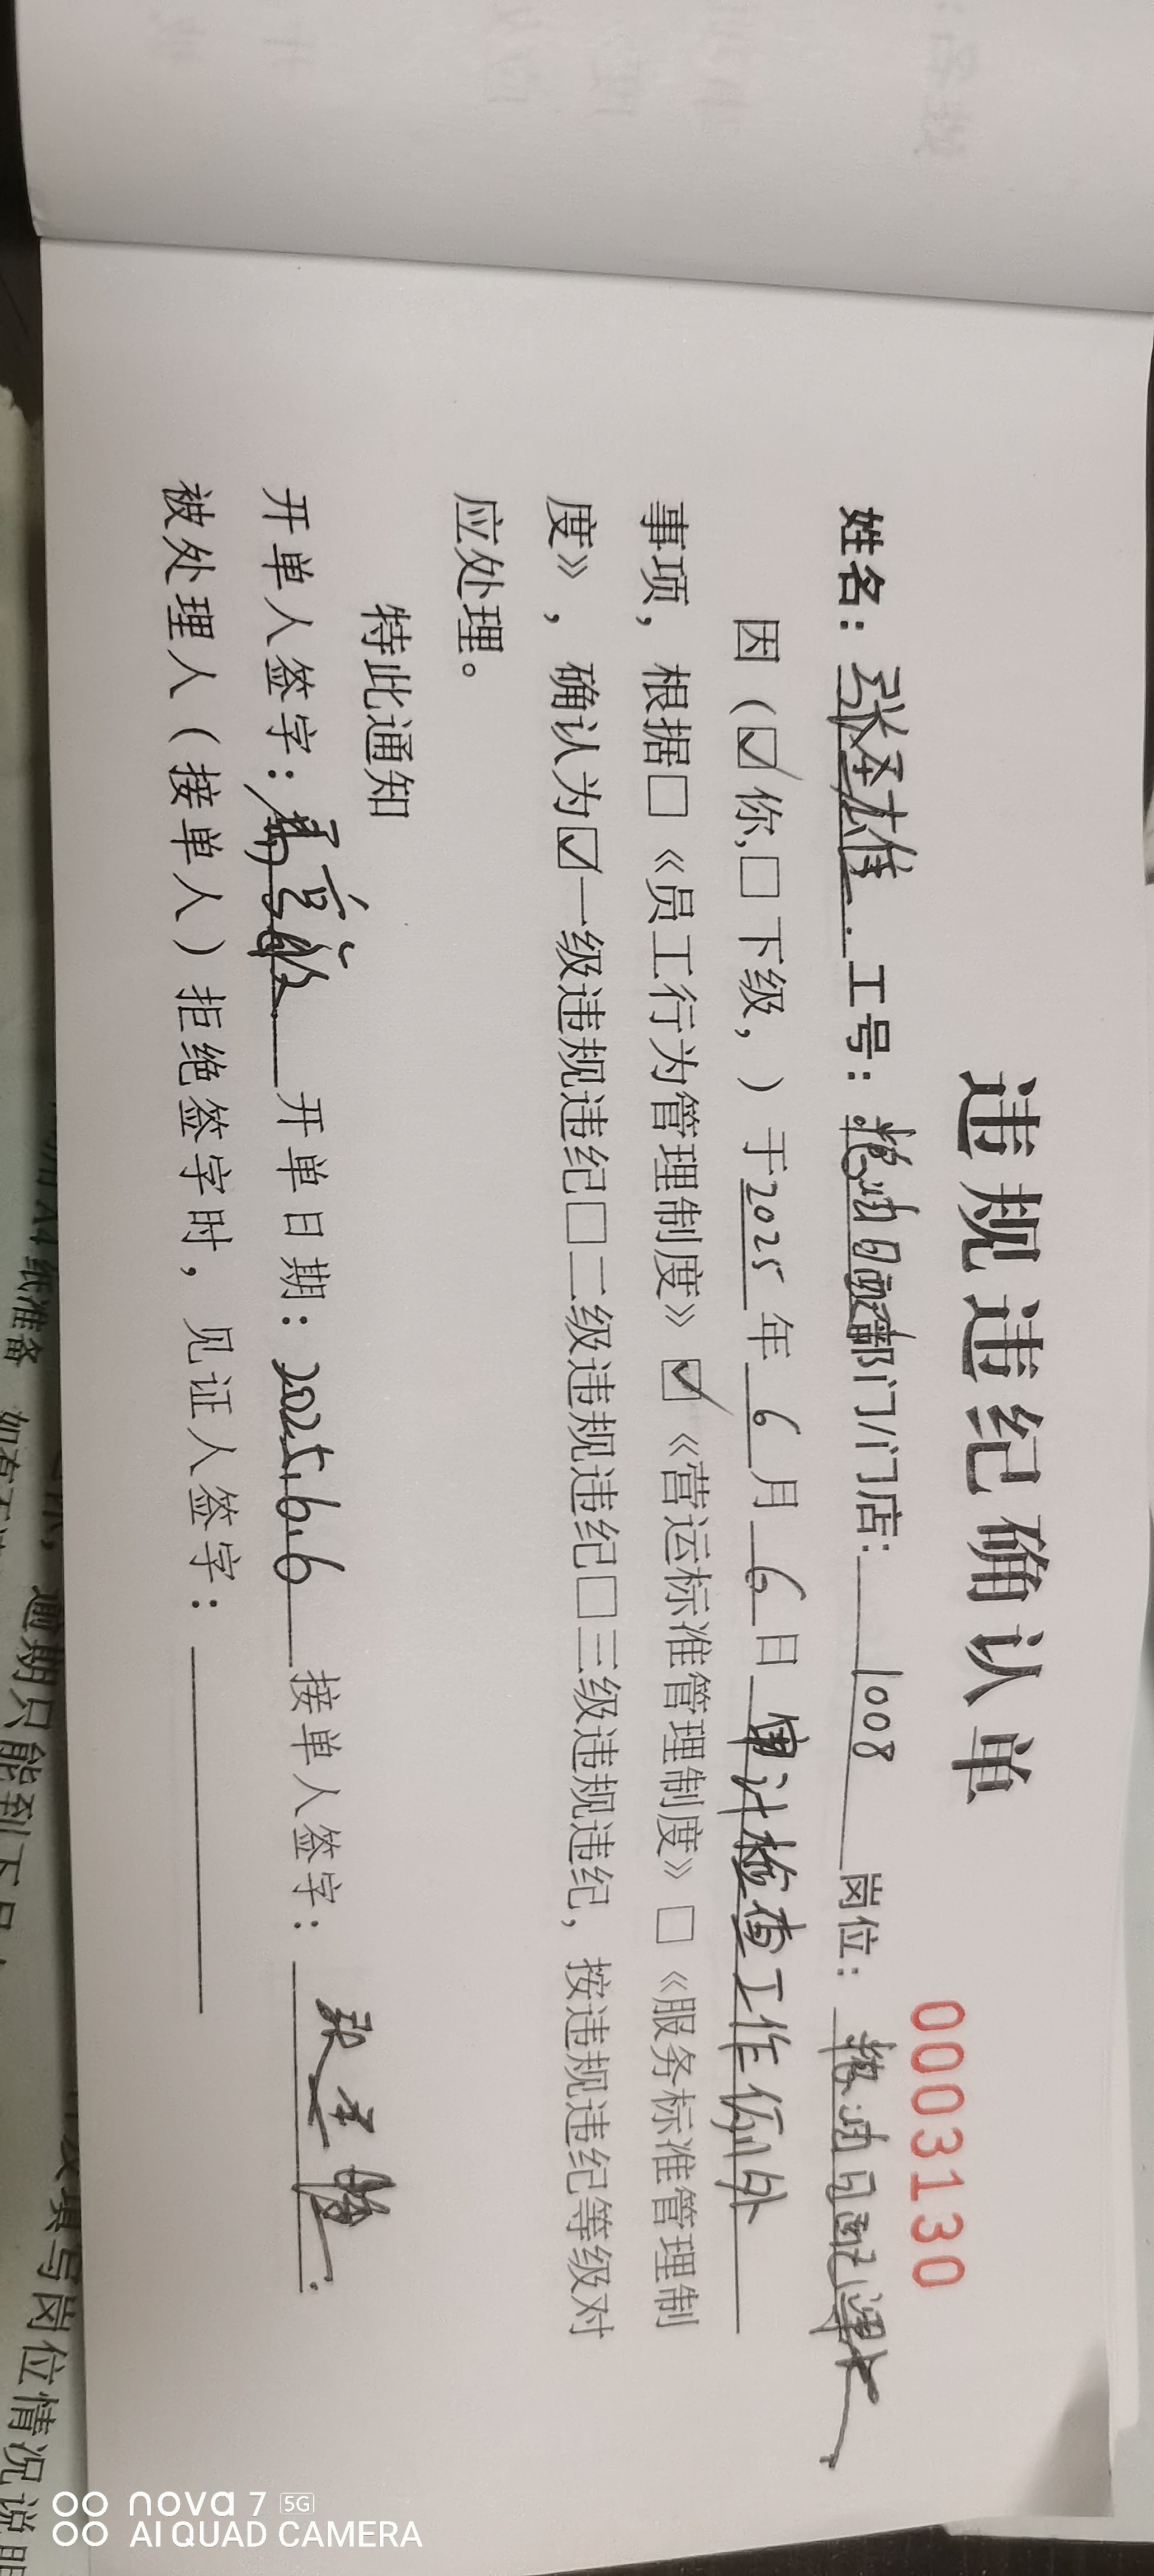 违规违纪确认单
0003130
姓名：张圣雄 工号：粮油日配部门/门店：1008 岗位：粮油日配课长
因（☑你,□下级，）于2025年6月6日 审计检查工作例外
事项，根据□《员工行为管理制度》☑《营运标准管理制度》□《服务标准管理制
度》，确认为☑一级违规违纪□二级违规违纪□三级违规违纪，按违规违纪等级对
应处理。
特此通知
开单人签字： 开单日期：2025.6.6 接单人签字：张圣雄
被处理人（接单人）拒绝签字时，见证人签字：
纸准备
逾期只能到下
填写岗位情况说明
nova 7 5G
AI QUAD CAMERA